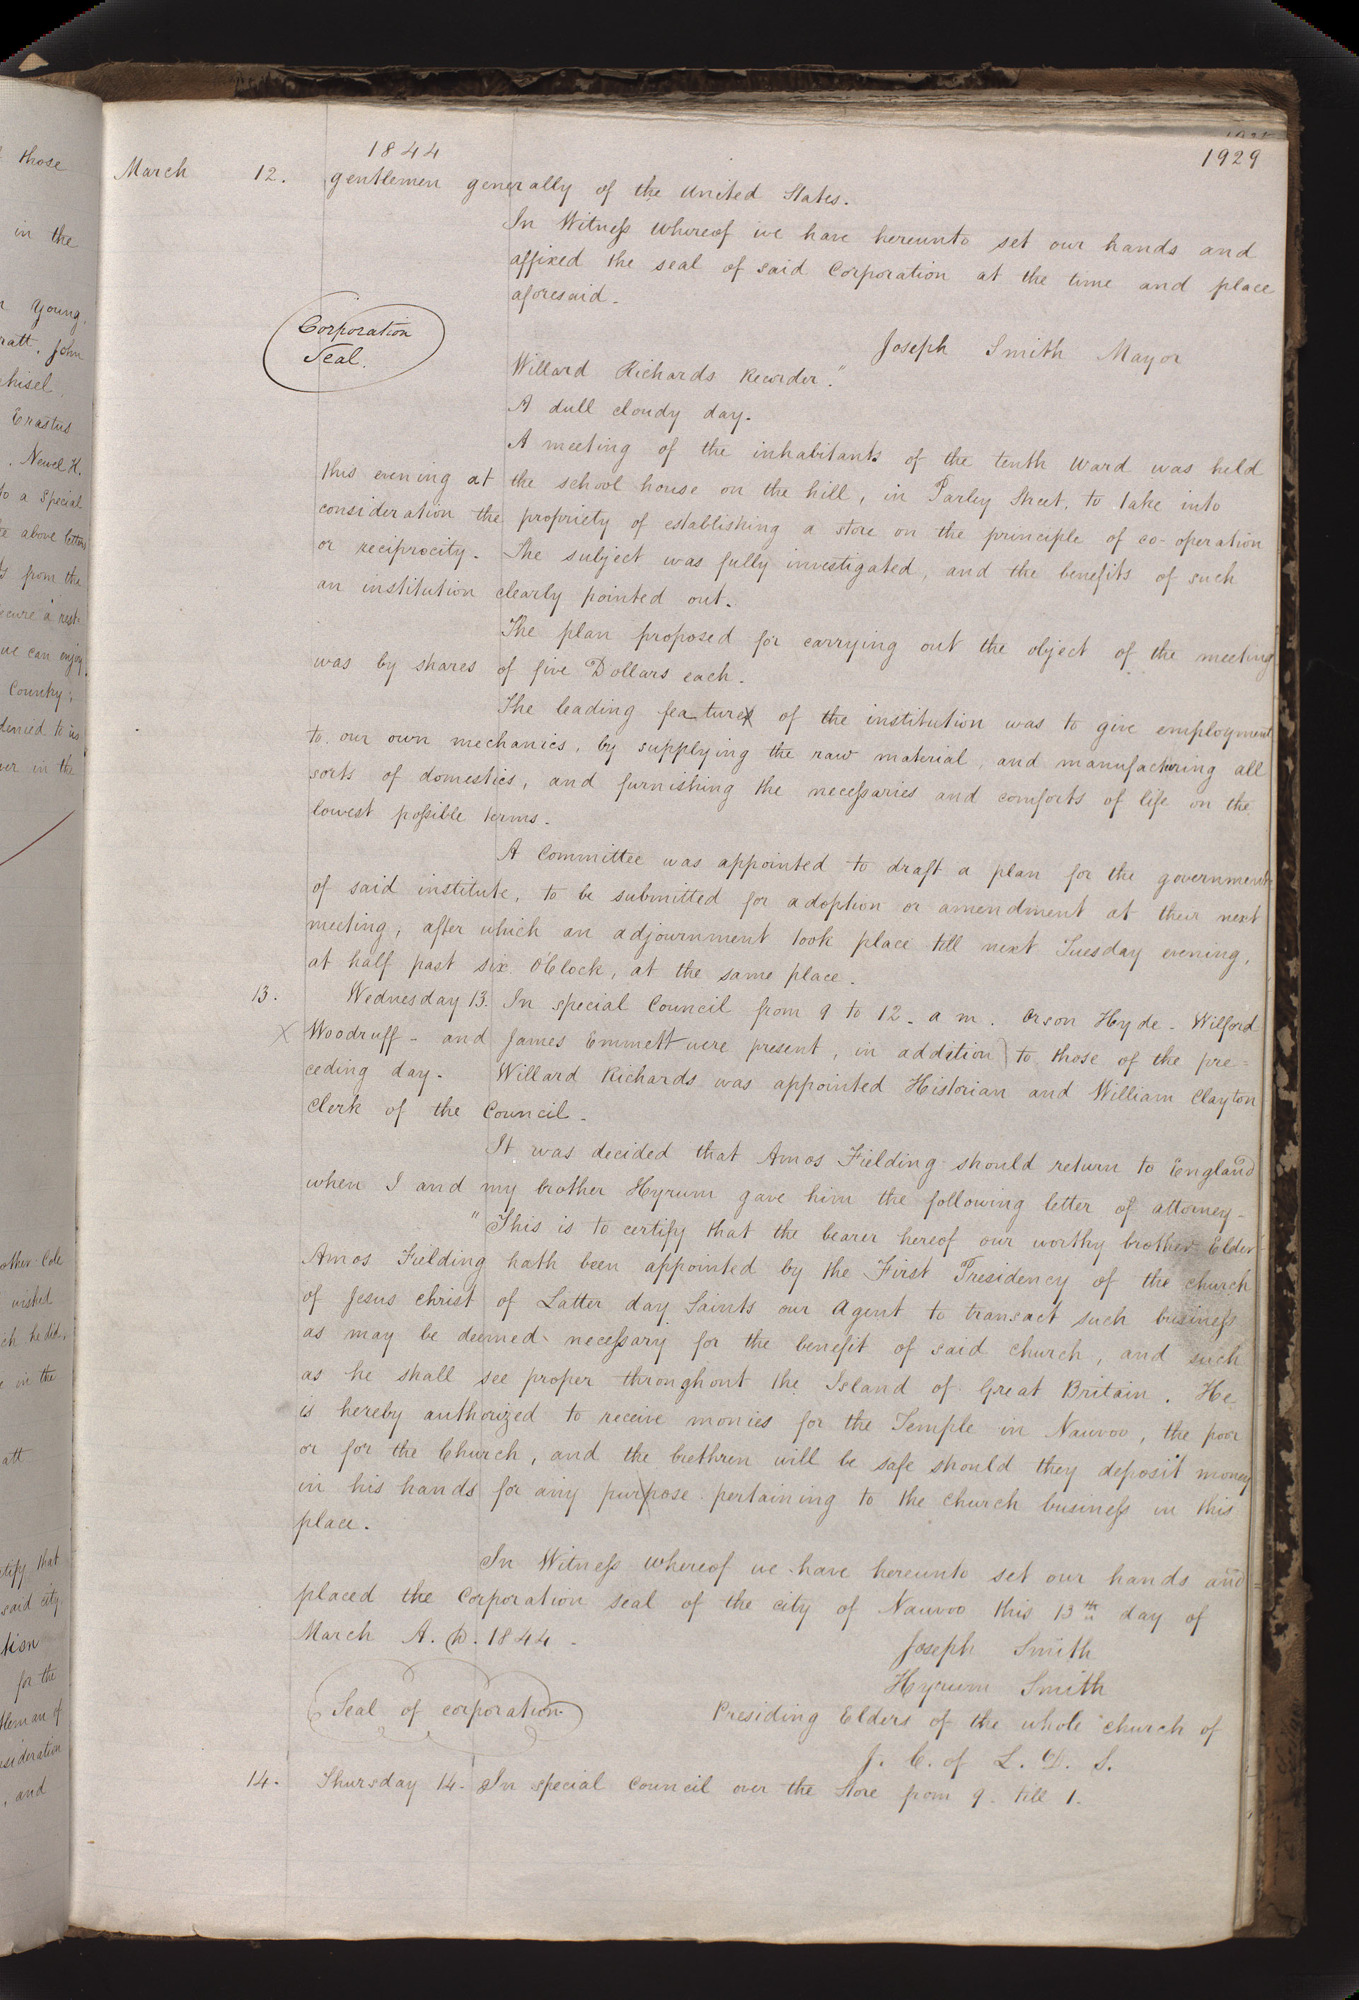 1844
1929
March 12. gentlemen generally of the United States.
In Witness whereof we have hereunto set our hands and
affixed the seal of said Corporation at the time and place
aforesaid.
Corporation
Seal.
Joseph Smith Mayor
Willard Richards Recorder."
A dull cloudy day.
A meeting of the inhabitants of the tenth Ward was held
this evening at the school house on the hill, in Parley Street, to take into
consideration the propriety of establishing a store on the principle of co-operation
or reciprocity. The subject was fully investigated, and the benefits of such
an institution clearly pointed out.
The plan proposed for carrying out the object of the meeting
was by shares of five Dollars each.
The leading feature of the institution was to give employment
to our own mechanics, by supplying the raw material, and manufacturing all
sorts of domestics, and furnishing the necessaries and comforts of life on the
lowest possible terms.
A Committee was appointed to draft a plan for the government
of said institute, to be submitted for adoption or amendment at their next
meeting, after which an adjournment took place till next Tuesday evening,
at half past six O'Clock, at the same place.
13. Wednesday 13. In special Council from 9 to 12. a m. Orson Hyde. Wilford
X Woodruff. and James Emmett were present, in addition to those of the pre=
ceding day. Willard Richards was appointed Historian and William Clayton
Clerk of the Council.
It was decided that Amos Fielding should return to England
when I and my brother Hyrum gave him the following letter of attorney-
"This is to certify that the bearer hereof our worthy brother Elder
Amos Fielding hath been appointed by the First Presidency of the church
of Jesus christ of Latter day Saints our Agent to transact such business
as may be deemed necessary for the benefit of said church, and such
as he shall see proper throughout the Island of Great Britain. He
is hereby authorized to receive monies for the Temple in Nauvoo, the poor
or for the Church, and the brethren will be safe should they deposit money
in his hands for any purpose pertaining to the church business in this
place.
In Witness whereof we have hereunto set our hands and
placed the Corporation seal of the city of Nauvoo this 13th day of
March A.D. 1844.
Joseph Smith
Hyrum Smith
Seal of corporation
Presiding Elders of the whole church of
J. C. of L. D. S.
14. Thursday 14. In special Council over the Store from 9. till 1.